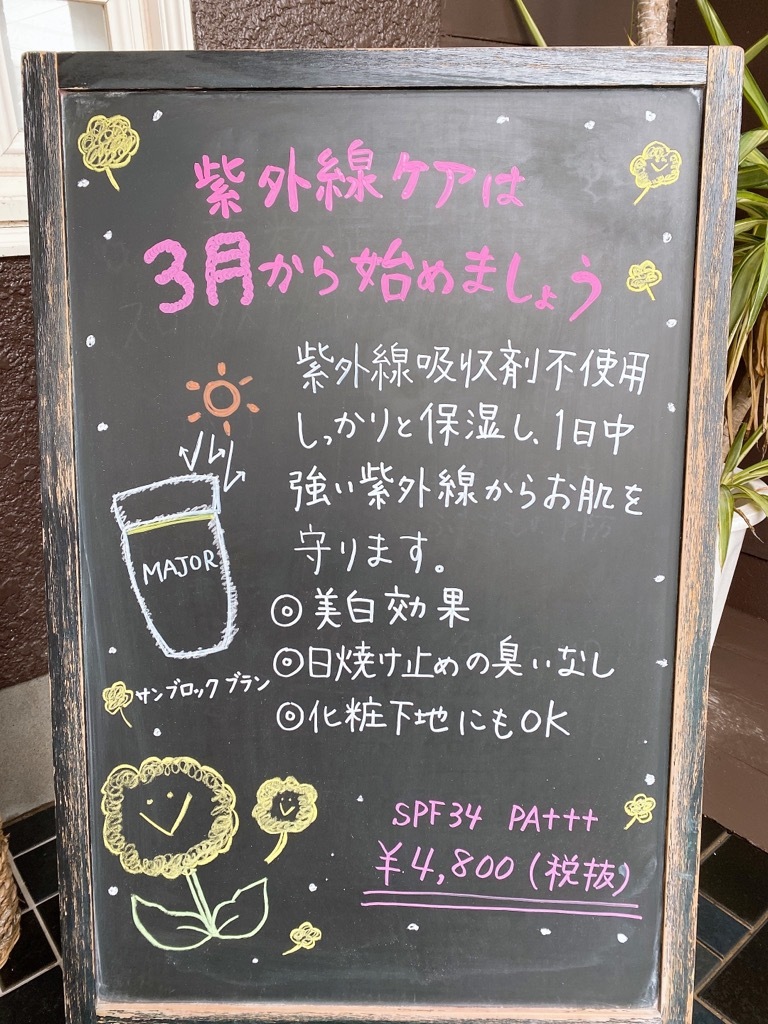 紫外線ケアは
3月から始めましょう
紫外線吸収剤不使用
しっかりと保湿し、1日中
強い紫外線からお肌を
守ります。
MAJOR
◎美白効果
◎日焼け止めの臭いなし
サンブロック ブラン
◎化粧下地にもOK
SPF34 PA+++
¥4,800(税抜)